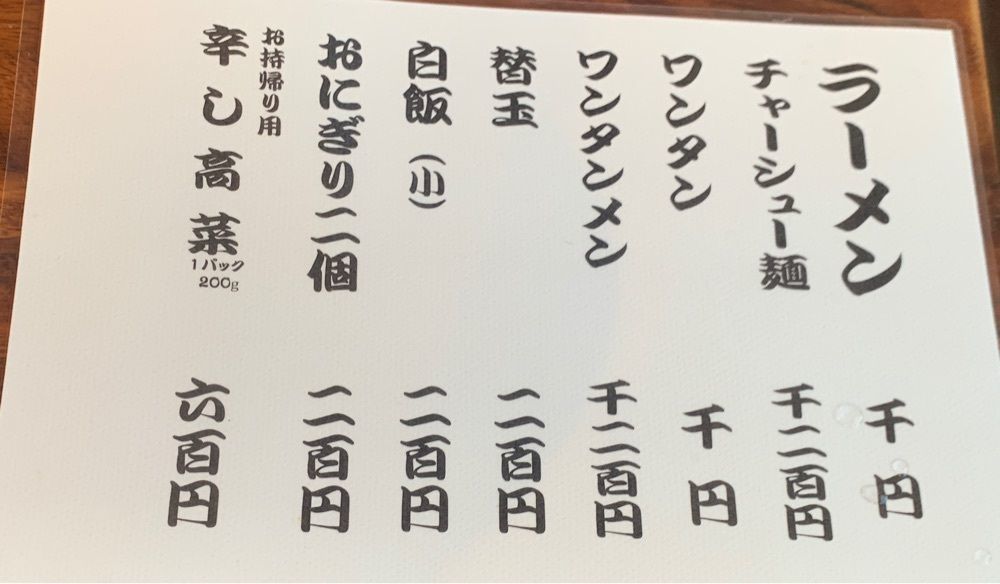 ラーメン 千円
チャーシュー麺 千二百円
ワンタン 千円
ワンタンメン 千二百円
替玉 二百円
白飯（小） 二百円
おにぎり二個 二百円
お持帰り用
辛し高菜 六百円
1パック
200g